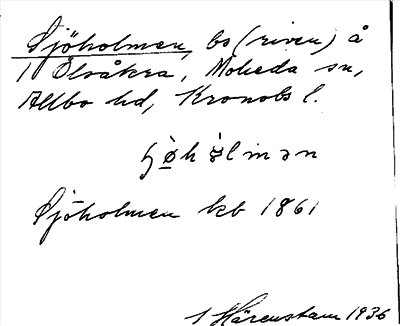 Sjöholmen, bs (riven) å
1 Elsåkra, Moheda sn,
Allbo hd, Kronobs l.
Sjöholmen kb 1861
Härenstam 1936